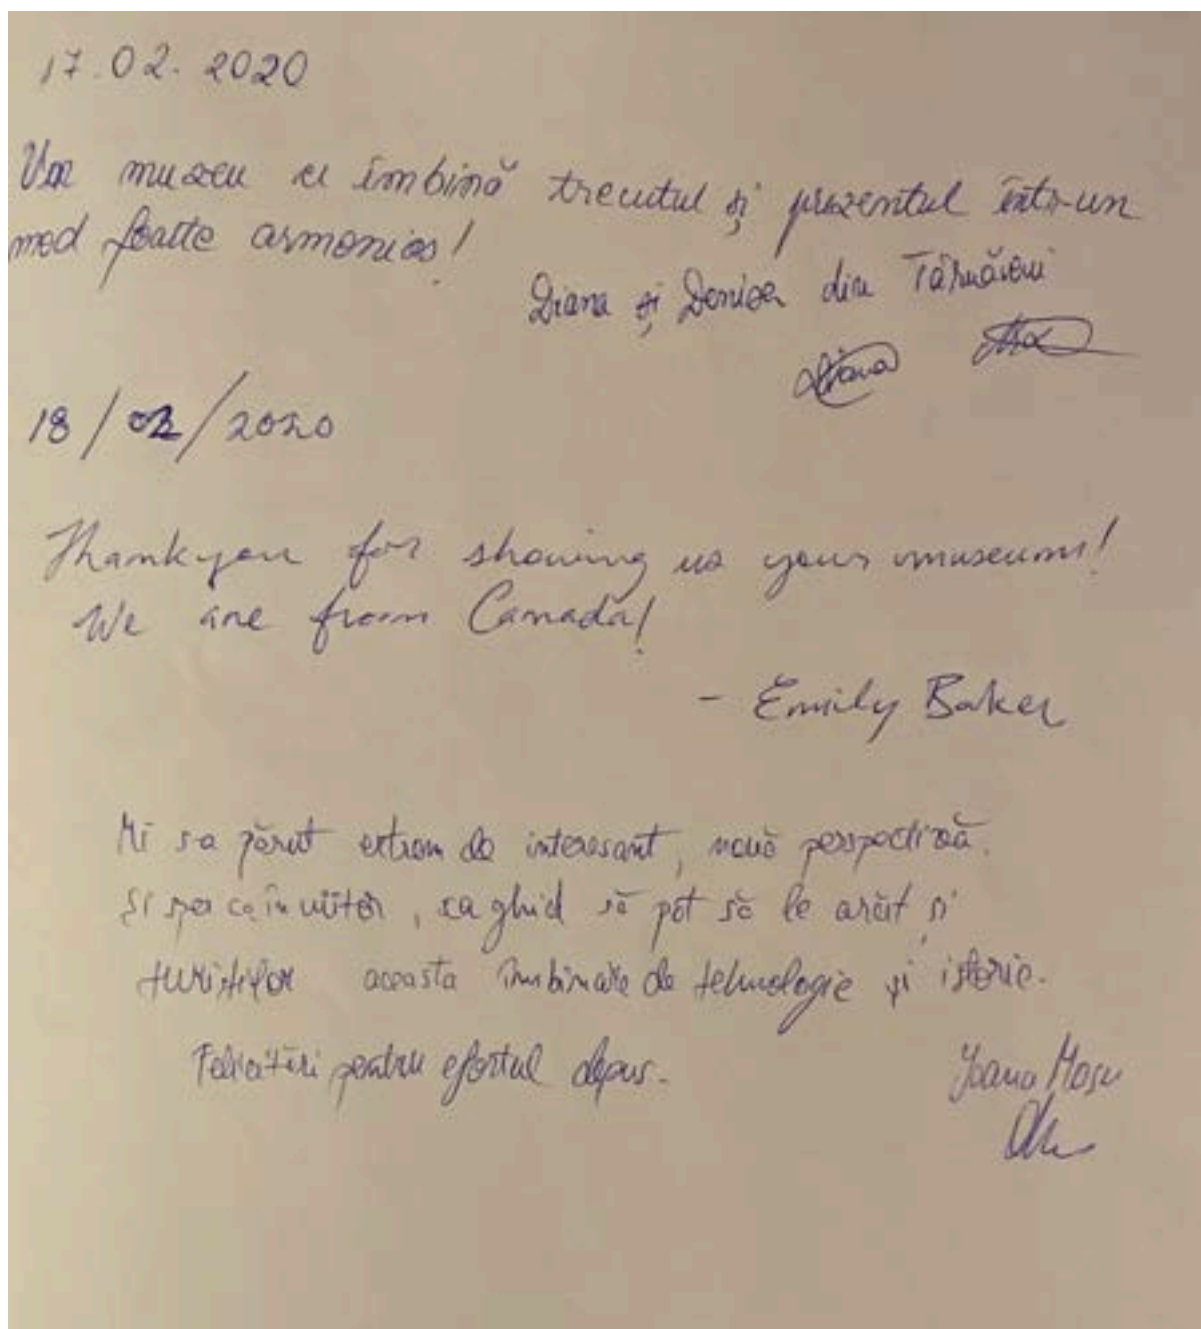 17.02.2020
Un muzeu ce îmbină trecutul și prezentul într-un
mod foarte armonios!
Diana și Denisa din Târnăveni
Diana
18/02/2020
Thank you for showing us your museum!
We are from Canada!
- Emily Baker
Mi s-a părut extrem de interesant, nouă perspectivă.
Si sper ca în viitor, ca ghid să pot să le arăt si
turiștilor aceasta îmbinare de tehnologie și istorie.
Felicitări pentru efortul depus.
Ioana Mosu